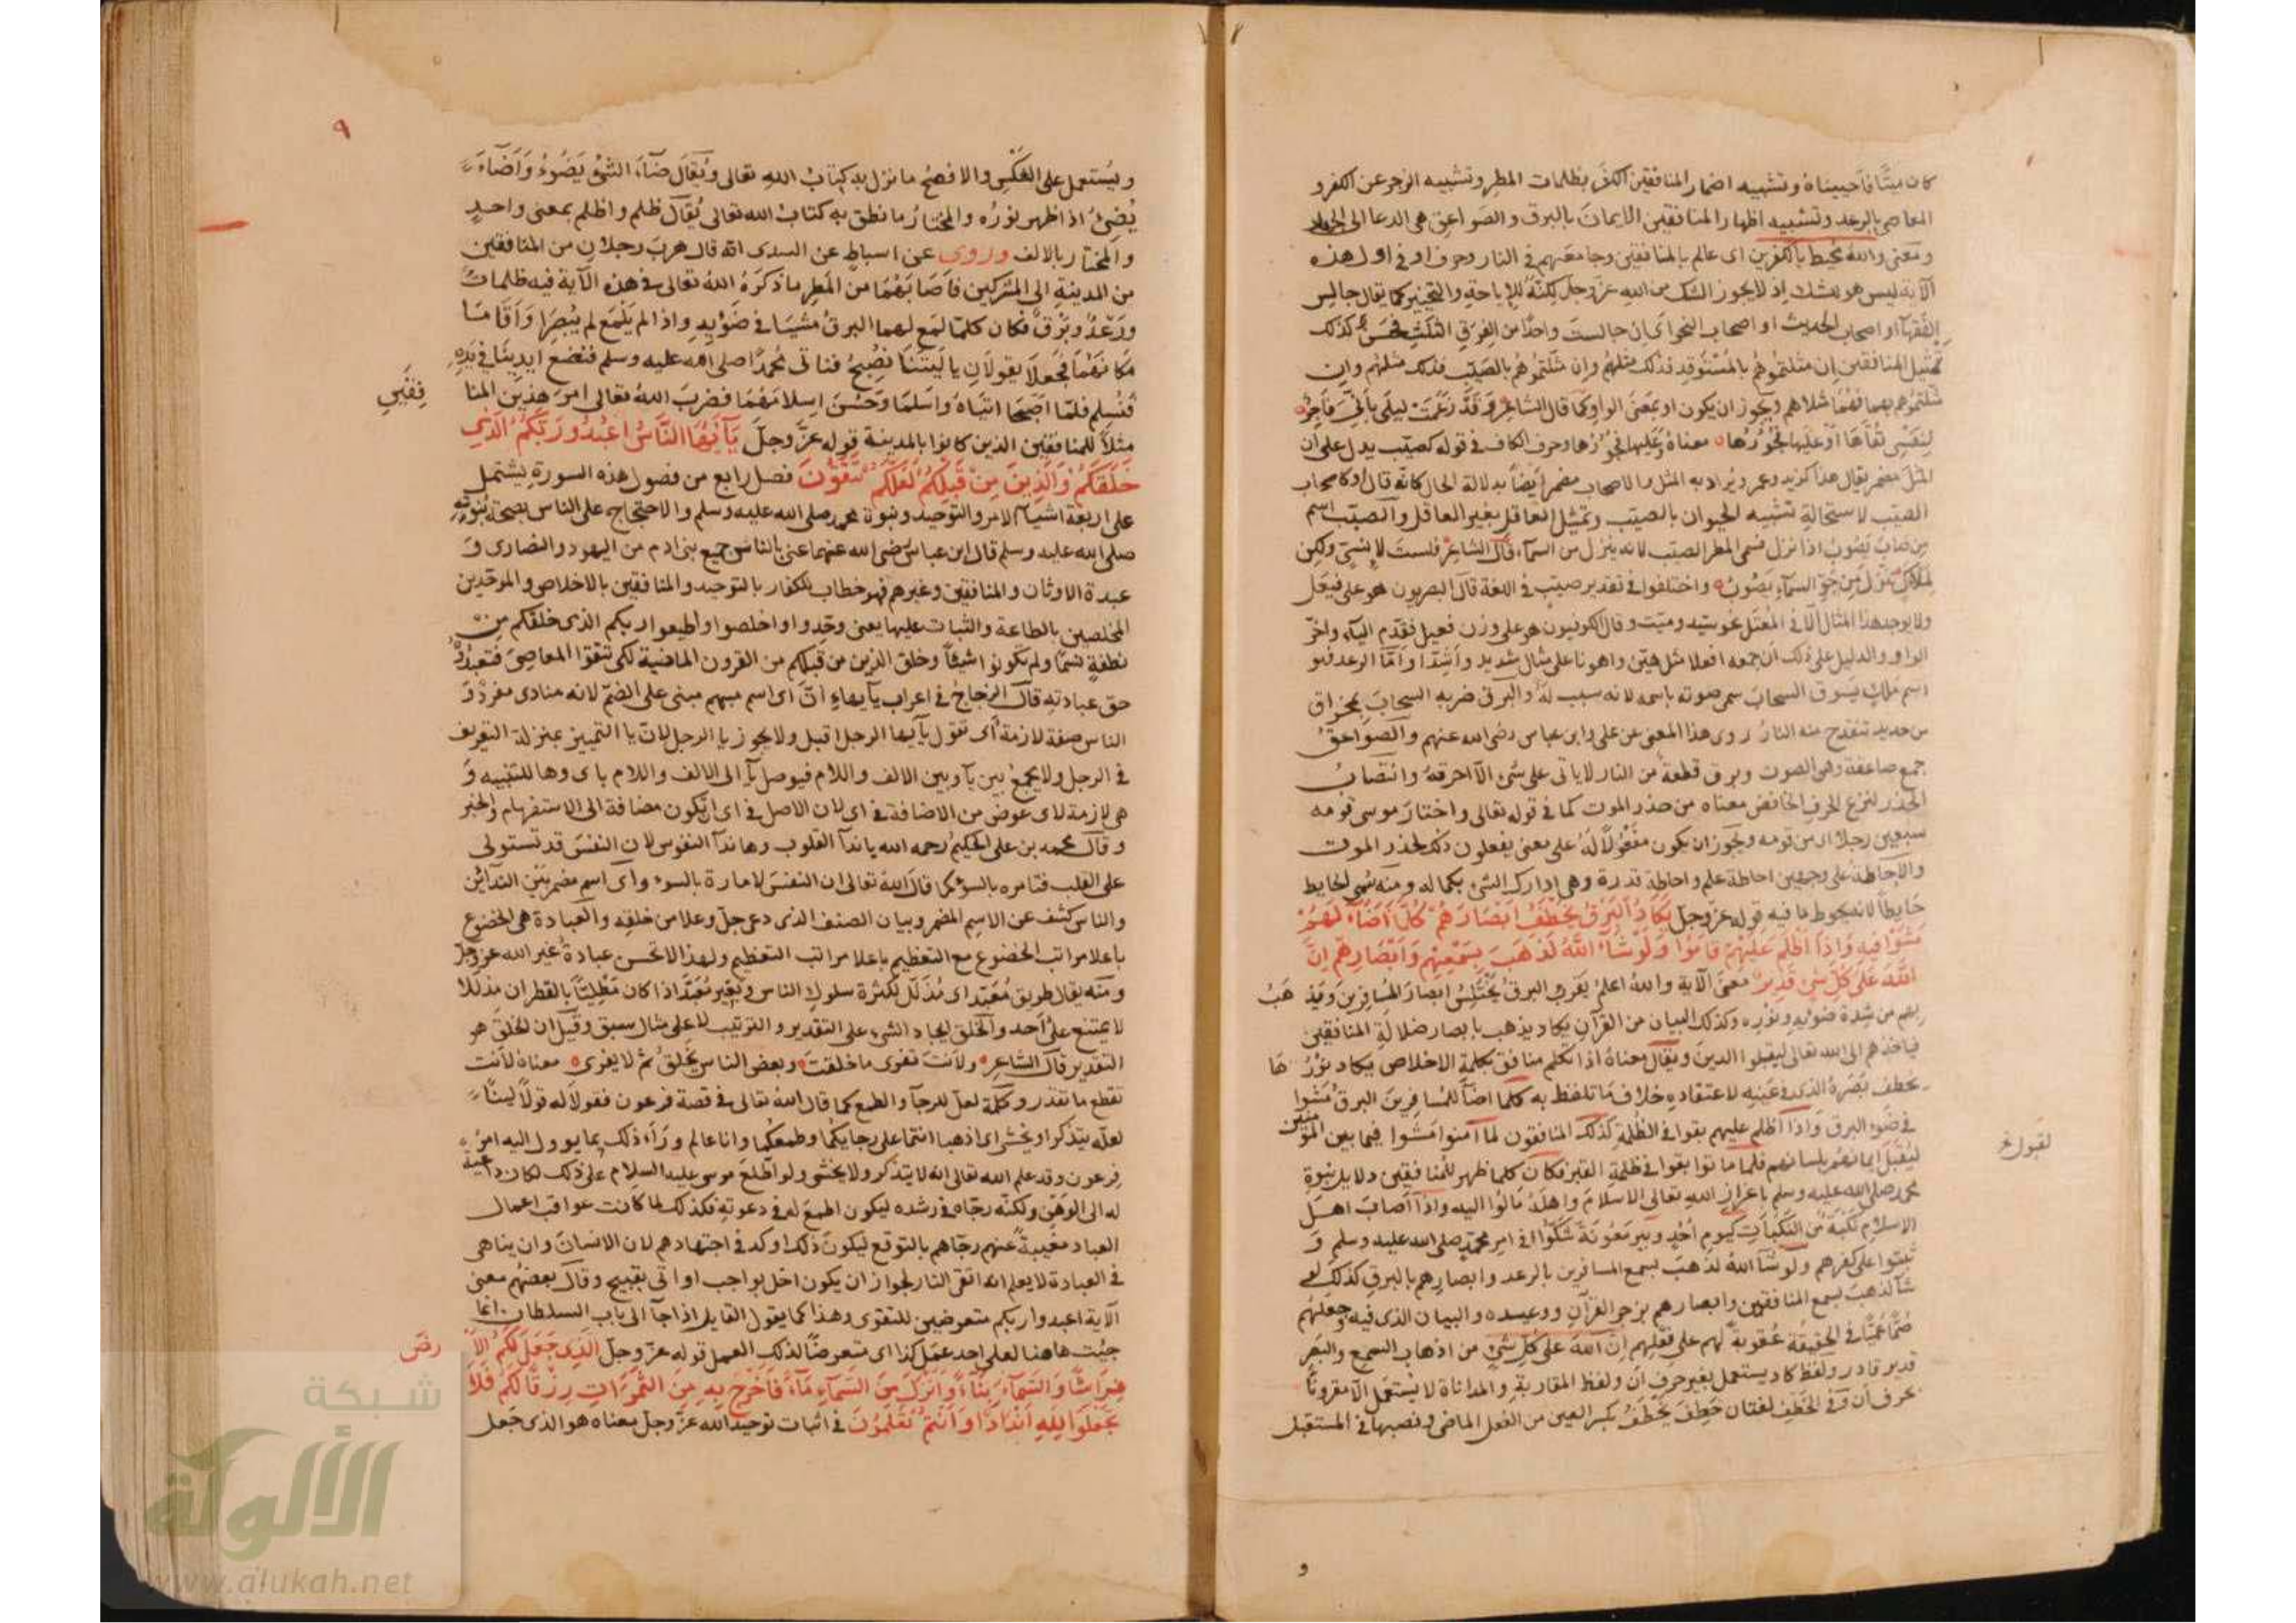 كان ميتًا فأحييناه وتشبيه اضمار المنافقين الكفر بظلمات المطر وتشبيه الزجر عن الكفر و
المعاصى بالرعد وتشبيه اظهار المنافقين الايمان بالبرق والصواعق هى الدعا الى الجهاد
ومعنى والله محيط بالكفرين اى عالم بالمنافقين وجامعهم فى النار وحرف او فى اول هذه
الآية ليس هو بشك اذ لا يجوز الشك من الله عز وجل لكنه للاباحة والتخيير كما يقال جالس
الفقهآ او اصحاب الحديث او اصحاب النحو اى ان جالست واحدًا من الفرق الثلث فحسن كذلك
تمثيل المنافقين ان مثلتموهم بالمستوقد فذلك مثلهم وان مثلتموهم بالصيّب فذلك مثلهم وان
مثلتموهم بهما فهما مثلاهم ويجوز ان يكون او بمعنى الواو كما قال الشاعر وقد زعمت ليلى بأنى فاجر
لنفسى تقاها او عليها فجورها معناه وعليها فجورها وحرف الكاف فى قوله كصيّب يدل على ان
المثل مضمر يقال هذا كزيد وعمرو يراد به المثل والاصحاب مضمر ايضًا بدلالة الحال كانه قال او كاصحاب
الصيّب لاستحالة تشبيه الحيوان بالصيّب وتمثيل العاقل بغير العاقل والصيّب اسم
من صاب يصوب اذا نزل فسمى المطر الصيّب لانه ينزل من السمآء قال الشاعر فلست لإنسىّ ولكن
لملاك تنزل من جوّ السمآء يصوب واختلفوا فى تقدير صيّب فى اللغة قال البصريون هو على فيعل
ولا يوجد هذا المثال الا فى المعتل نحو سيّد وميّت وقال الكوفيون هو على وزن فعيل فقدم اليآء واخّر
الواو والدليل على ذلك ان جمعه افعلا مثل هيّن واهونا على مثال شديد واشدّا وامّا الرعد فهو
اسم ملك يسوق السحاب سمى صوته باسمه لانه سبب له والبرق ضربه السحاب بمخراق
من حديد تنقدح منه النار روى هذا المعنى عن على وابن عباس رضى الله عنهم والصواعق
جمع صاعقة وهى الصوت وبرق قطعة من النار لا ياتى على شئ الا احرقه وانتصاب
الحذر لنزع الحرف الخافض معناه من حذر الموت كما فى قوله تعالى واختار موسى قومه
سبعين رجلا اى من قومه ويجوز ان يكون مفعولا له على معنى يفعلون ذلك لحذر الموت
والاحاطة على وجهين احاطة علم واحاطة قدرة وهى ادراك الشئ بكماله ومنه سمى الحايط
حايطًا لانه يحوط ما فيه قوله عز وجل يكاد البرق يخطف ابصارهم كلمآ اضآء لهم
مشوا فيه واذا اظلم عليهم قاموا ولو شآء الله لذهب بسمعهم وابصارهم ان
الله على كل شئ قدير معنى الآية والله اعلم يقرب البرق يختلس ابصار المسافرين ويذهب
بهم من شدة ضوئه ونوره وكذلك البيان من القرآن يكاد يذهب بابصار ضلالة المنافقين
فياخذهم الى الله تعالى ليقبلوا الدين ويقال معناه اذا تكلم منافق بكلمة الاخلاص يكاد نورها
يخطف بصره الذى فى عينه لاعتقاده خلاف ما تلفظ به كلما اضآ للمسافرين البرق مشوا
فى ضوء البرق واذا اظلم عليهم بقوا فى الظلمة كذلك المنافقون لما آمنوا مشوا فيما بين المؤمنين
لتقبل ايمانهم بلسانهم فلما ماتوا بقوا فى ظلمة القبر فكان كلما ظهر للمنافقين دلايل نبوة
محمد صلى الله عليه وسلم باعزاز الله تعالى الاسلام واهله مالوا اليه واذا اصاب اهل
الاسلام نكبة من النكبات كيوم احد وبير معونة شكوا فى امر محمد صلى الله عليه وسلم و
ثبتوا على كفرهم ولو شآ الله لذهب بسمع المسافرين بالرعد وابصارهم بالبرق كذلك لو
شآ لذهب بسمع المنافقين وابصارهم بزجر القرآن ووعيده والبيان الذى فيه وجعلهم
صمًّا عميًا فى الحقيقة عقوبة لهم على فعلهم ان الله على كل شئ من اذهاب السمع والبصر
قدير قادر ولفظ كاد يستعمل بغير حرف ان ولفظ المقاربة والمداناة لا يستعمل الا مقرونًا
بحرف ان وفى الخطف لغتان خطف يخطف بكسر العين من الفعل الماضى ونصبها فى المستقبل
و
٩
ويستعمل على العكس والافصح ما نزل به كتاب الله تعالى ويقال ضآء الشئ يضوء واضآء
يضئ اذا ظهر نوره والمختار ما نطق به كتاب الله تعالى يقال ظلم واظلم بمعنى واحد
والمختار بالالف وروى عن اسباط عن السدى انه قال هرب رجلان من المنافقين
من المدينة الى المشركين فاصابهما من المطر ما ذكره الله تعالى فى هذه الآية فيه ظلمات
ورعد وبرق فكان كلما لمع لهما البرق مشيا فى ضوئه واذا لم يلمع لم يبصرا واقاما
مكانهما فجعلا يقولان يا ليتنا نصبح فناتى محمدًا صلى الله عليه وسلم فنضع ايدينا فى يده
فنسلم فلما اصبحا اتياه واسلما وحسن اسلامهما فضرب الله تعالى امر هذين المنا
فقين
مثلاً للمنافقين الذين كانوا بالمدينة قوله عز وجل يآ ايها الناس اعبدوا ربكم الذى
خلقكم والذين من قبلكم لعلكم تتقون فصل رابع من فصول هذه السورة يشتمل
على اربعة اشيآء الامر والتوحيد ونبوة محمد صلى الله عليه وسلم والاحتجاج على الناس بصحة نبوته
صلى الله عليه وسلم قال ابن عباس رضى الله عنهما عنى بالناس جميع بنى ادم من اليهود والنصارى و
عبدة الاوثان والمنافقين وغيرهم فهو خطاب للكفار بالتوحيد والمنافقين بالاخلاص والموحدين
المخلصين بالطاعة والثبات عليها يعنى وحدوا واخلصوا واطيعوا ربكم الذى خلقكم من
نطفة نسمًا ولم تكونوا شيئًا وخلق الذين من قبلكم من القرون الماضية لكى تتقوا المعاصى فتعبدوه
حق عبادته قال الزجاج فى اعراب يآ ايها ان اى اسم مبهم مبنى على الضم لانه منادى مفرد و
الناس صفة لازمة اى تقول يآ ايها الرجل اقبل ولا يجوز يا الرجل لان يا التمييز بمنزلة التعريف
فى الرجل ولا يجمع بين يآ وبين الالف واللام فيوصل يآ الى الالف واللام باى وها للتنبيه و
هى لازمة لاى عوض من الاضافة فى اى لان الاصل فى اى ان تكون مضافة الى الاستفهام والخبر
وقال محمد بن على الحكيم رحمه الله يا ندآ القلوب وها ندآ النفوس لان النفس قد تستولى
على القلب فتامره بالسوء كما قال الله تعالى ان النفس لامارة بالسوء واى اسم مضمر بين الندائين
والناس كشف عن الاسم المضمر وبيان الصنف الذى دعى جل وعلا من خلقه والعبادة هى الخضوع
باعلا مراتب الخضوع مع التعظيم باعلا مراتب التعظيم ولهذا لا تحسن عبادة غير الله عز وجل
ومنه يقال طريق معبّد اى مذلل لكثرة سلوك الناس وبعير معبّد اذا كان مطليًّا بالقطران مذللا
لا يمتنع على احد والخلق ايجاد الشئ على التقدير والترتيب لا على مثال سبق وقيل ان الخلق هو
التقدير قال الشاعر ولانت تفرى ما خلقت وبعض الناس يخلق ثم لا يفرى معناه لانت
تقطع ما تقدر وكلمة لعل للرجآ والطمع كما قال الله تعالى فى قصة فرعون فقولا له قولاً لينًا
لعله يتذكر او يخشى اى اذهبا انتما على رجايكما وطمعكما وانا عالم ورآء ذلك بما يوول اليه امر
فرعون وقد علم الله تعالى انه لا يتذكر ولا يخشى ولو اطلع موسى عليه السلام على ذلك لكان داعية
له الى الوهن ولكنه رجّاه فى رشده ليكون اطمع له فى دعوته فكذلك لما كانت عواقب اعمال
العباد مغيبة عنهم رجّاهم بالتوقع ليكون ذلك اوكد فى اجتهادهم لان الانسان وان يناهى
فى العبادة لا يعلم انه اتقى النار لجواز ان يكون اخل بواجب او اتى بقبيح وقال بعضهم معنى
الآية اعبدوا ربكم متعرضين للتقوى وهذا كما يقول القايل اذا جآ الى باب السلطان انما
جيت هاهنا لعلى اجد عمل كذا اى متعرضًا لذلك العمل قوله عز وجل الذى جعل لكم الا
رض
فراشًا والسمآء بنآء وانزل من السمآء مآء فاخرج به من الثمرات رزقًا لكم فلا
تجعلوا لله اندادًا وانتم تعلمون فى اثبات توحيد الله عز وجل معناه هو الذى جعل
شبكة
الألوكة
www.alukah.net